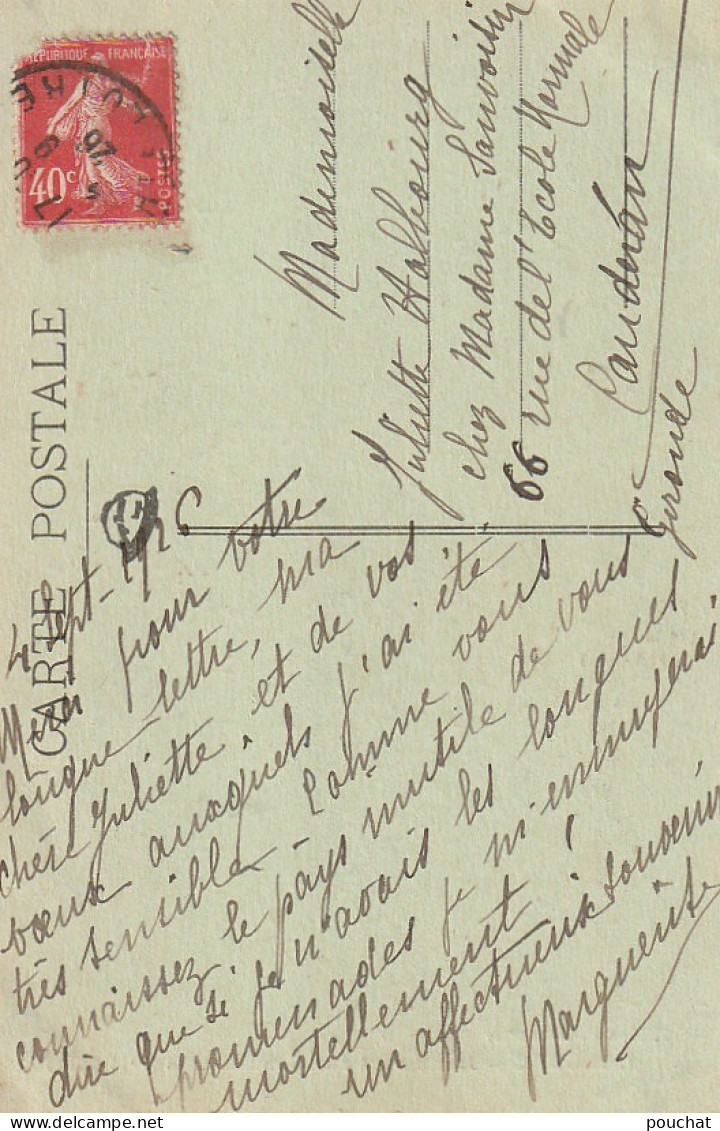 RÉPUBLIQUE FRANÇAISE
40c
POSTES
CARTE POSTALE
4 Sept- 1926
Merci pour votre
longue lettre, ma
chère Juliette, et de vos
vœux auxquels j'ai été
très sensible - Comme vous
connaissez le pays inutile de vous
dire que si je n'avais les longues
promenades je m'ennuyerai
mortellement !
un affectueux souvenir
Marguerite
Mademoiselle
Juliette
chez Madame
66 rue de l'Ecole Normale
Caudéran
Gironde
www.pouchat.com